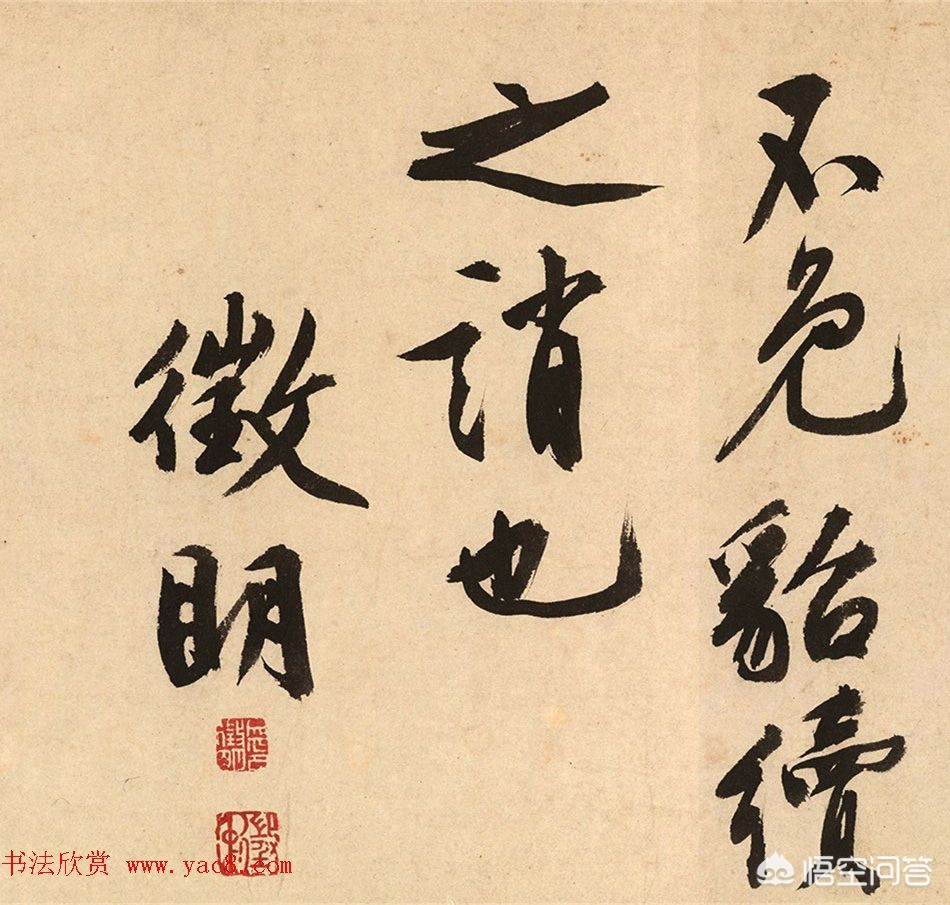 不免貂續
之誚也
徵明
书法欣赏 www.yac8.com
悟空问答